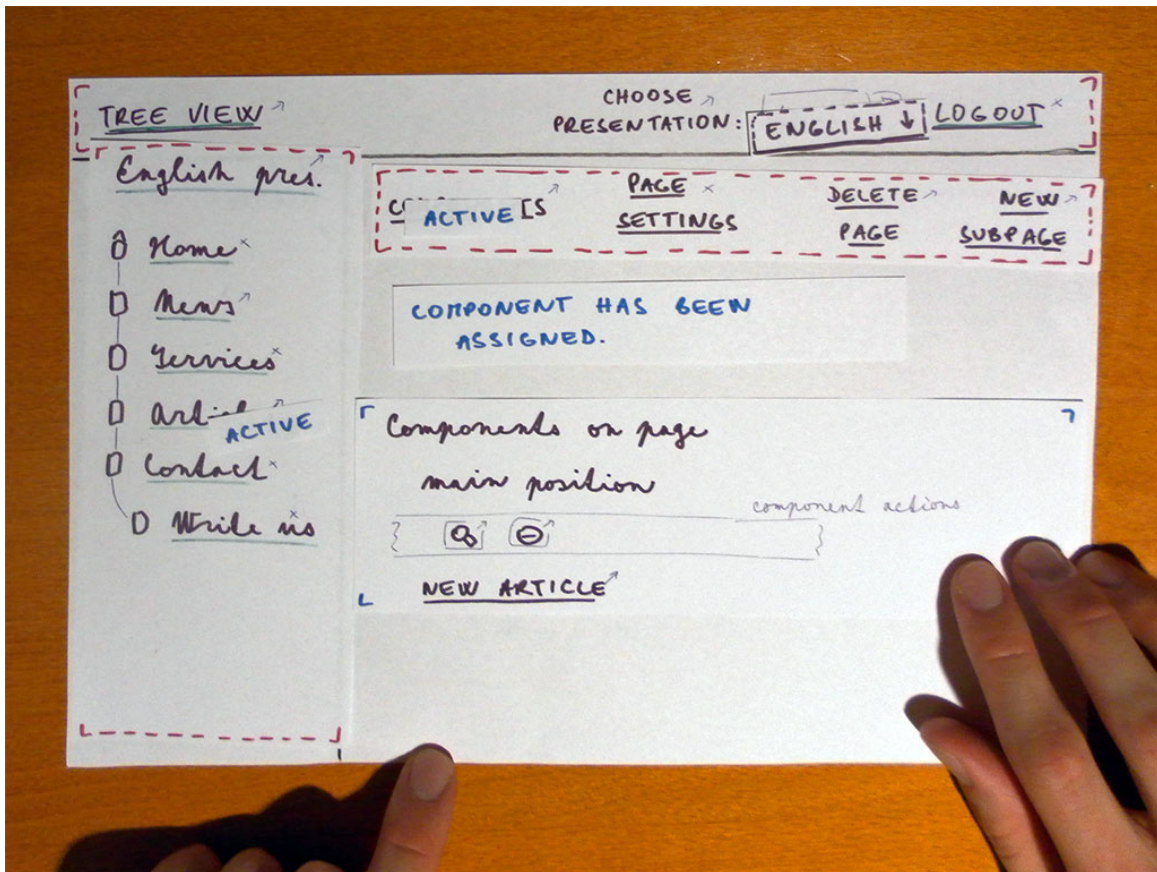 TREE VIEW
CHOOSE
PRESENTATION:
ENGLISH
LOGOUT
English pres.
Home
News
Services
ACTIVE
Contact
Write us
ACTIVE
PAGE
SETTINGS
DELETE
PAGE
NEW
SUBPAGE
COMPONENT HAS BEEN
ASSIGNED.
Components on page
main position
component actions
NEW ARTICLE